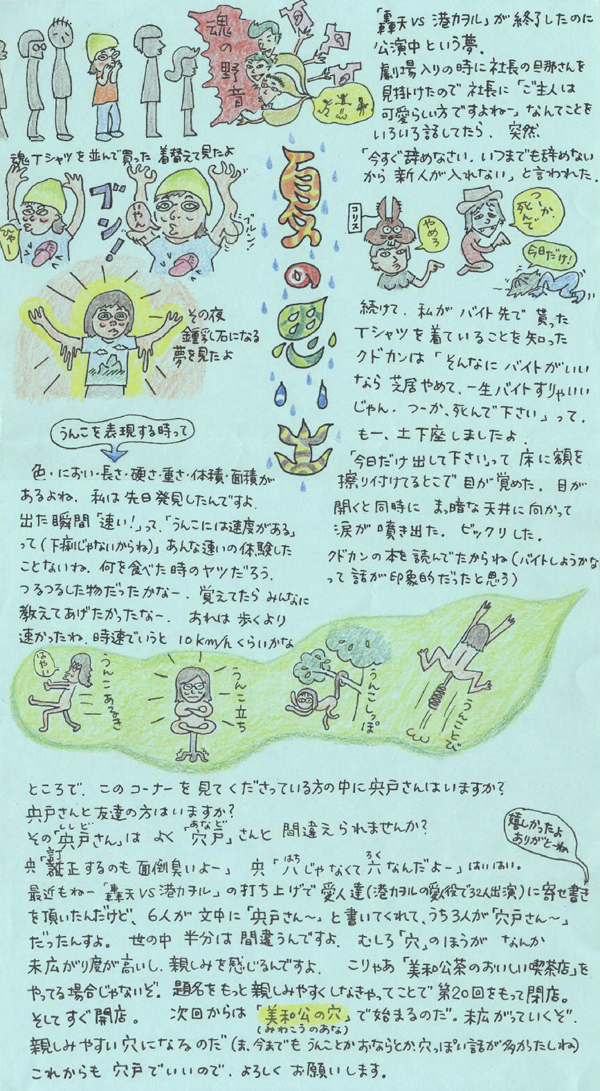 魂の野音
魂Tシャツを並んで買った 着替えて見たよ
ブン!
やん
ひゃー
ブルン!
その夜
鍾乳石になる
夢を見たよ
夏の思い出
「轟天VS港カヲル」が終了したのに
公演中という夢。
劇場入りの時に社長の旦那さんを
見掛けたので社長に「ご主人は
可愛らしい方ですよねー」なんてことを
いろいろ話してたら、突然
「今すぐ辞めなさい。いつまでも辞めない
から新人が入れない」と言われた。
コリス
やめろ
つーか、
死んで
今日だけ!
続けて、私がバイト先で貰った
Tシャツを着ていることを知った
クドカンは「そんなにバイトがいい
なら芝居やめて、一生バイトすりゃいい
じゃん。つーか、死んで下さい」って。
もー、土下座しましたよ。
「今日だけ出して下さい」って床に額を
擦り付けてるとこで目が覚めた。目が
開くと同時に まっ暗な天井に向かって
涙が噴き出た。ビックリした。
クドカンの本を読んでたからね(バイトしようかな
って話が印象的だったと思う)
うんこを表現する時って
色・におい・長さ・硬さ・重さ・体積・面積が
あるよね。私は先日発見したんですよ。
出た瞬間「速い!」って、「うんこには速度がある」
って(下痢じゃないからね)あんな速いの体験した
ことないね。何を食べた時のヤツだろう。
つるつるした物だったかなー。覚えてたらみんなに
教えてあげたかったなー。あれは歩くより
速かったね。時速でいうと 10km/hくらいかな
はやい
うんこあるき
うんこ立ち
うんこしっぽ
うんことび
ところで、このコーナーを見てくださっている方の中に宍戸さんはいますか?
宍戸さんと友達の方はいますか?
その「宍戸さん」は よく「穴戸」さんと間違えられませんか?
ししど
あなど
嬉しかったよ
ありがとーね
宍「訂正するのも面倒臭いよー」 宍「八じゃなくて六なんだよー」はいはい。
はち
ろく
最近もねー「轟天VS港カヲル」の打ち上げで愛人達(港カヲルの愛人役で32人出演)に寄せ書き
を頂いたんだけど、6人が文中に「宍戸さん〜」と書いてくれて、うち3人が「穴戸さん〜」
だったんすよ。世の中 半分は間違うんですよ。むしろ「穴」のほうが なんか
末広がり度が高いし、親しみを感じるんですよ。 こりゃあ「美和公茶のおいしい喫茶店」を
やってる場合じゃないぞ。題名をもっと親しみやすくしなきゃってことで第20回をもって閉店。
そしてすぐ開店。 次回からは「美和公の穴」で始まるのだ。末広がっていくぞ。
(みわこうのあな)
親しみやすい穴になるのだ(ま、今までもうんことかおならとか穴っぽい話が多かったしね)
これからも 穴戸でいいので、よろしくお願いします。